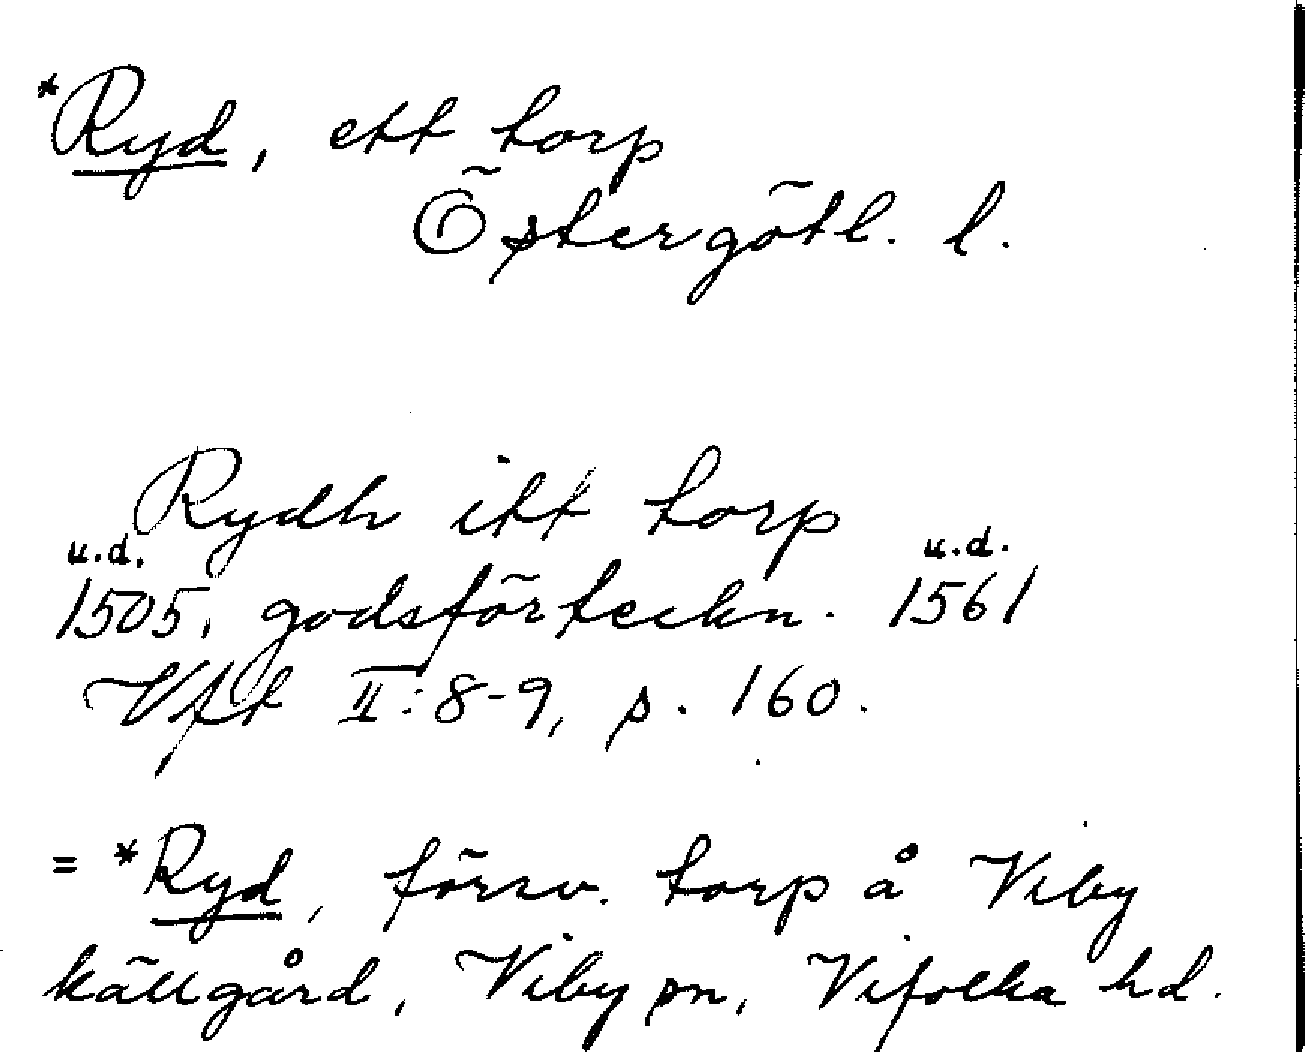 *Ryd, ett torp
Östergötl. l.
Rydh itt torp
u.d. u.d.
1505, godsförteckn. 1561
Vft II:8-9, s. 160.
= *Ryd, försv. torp å Viby
källgård, Viby sn, Vifolka hd.